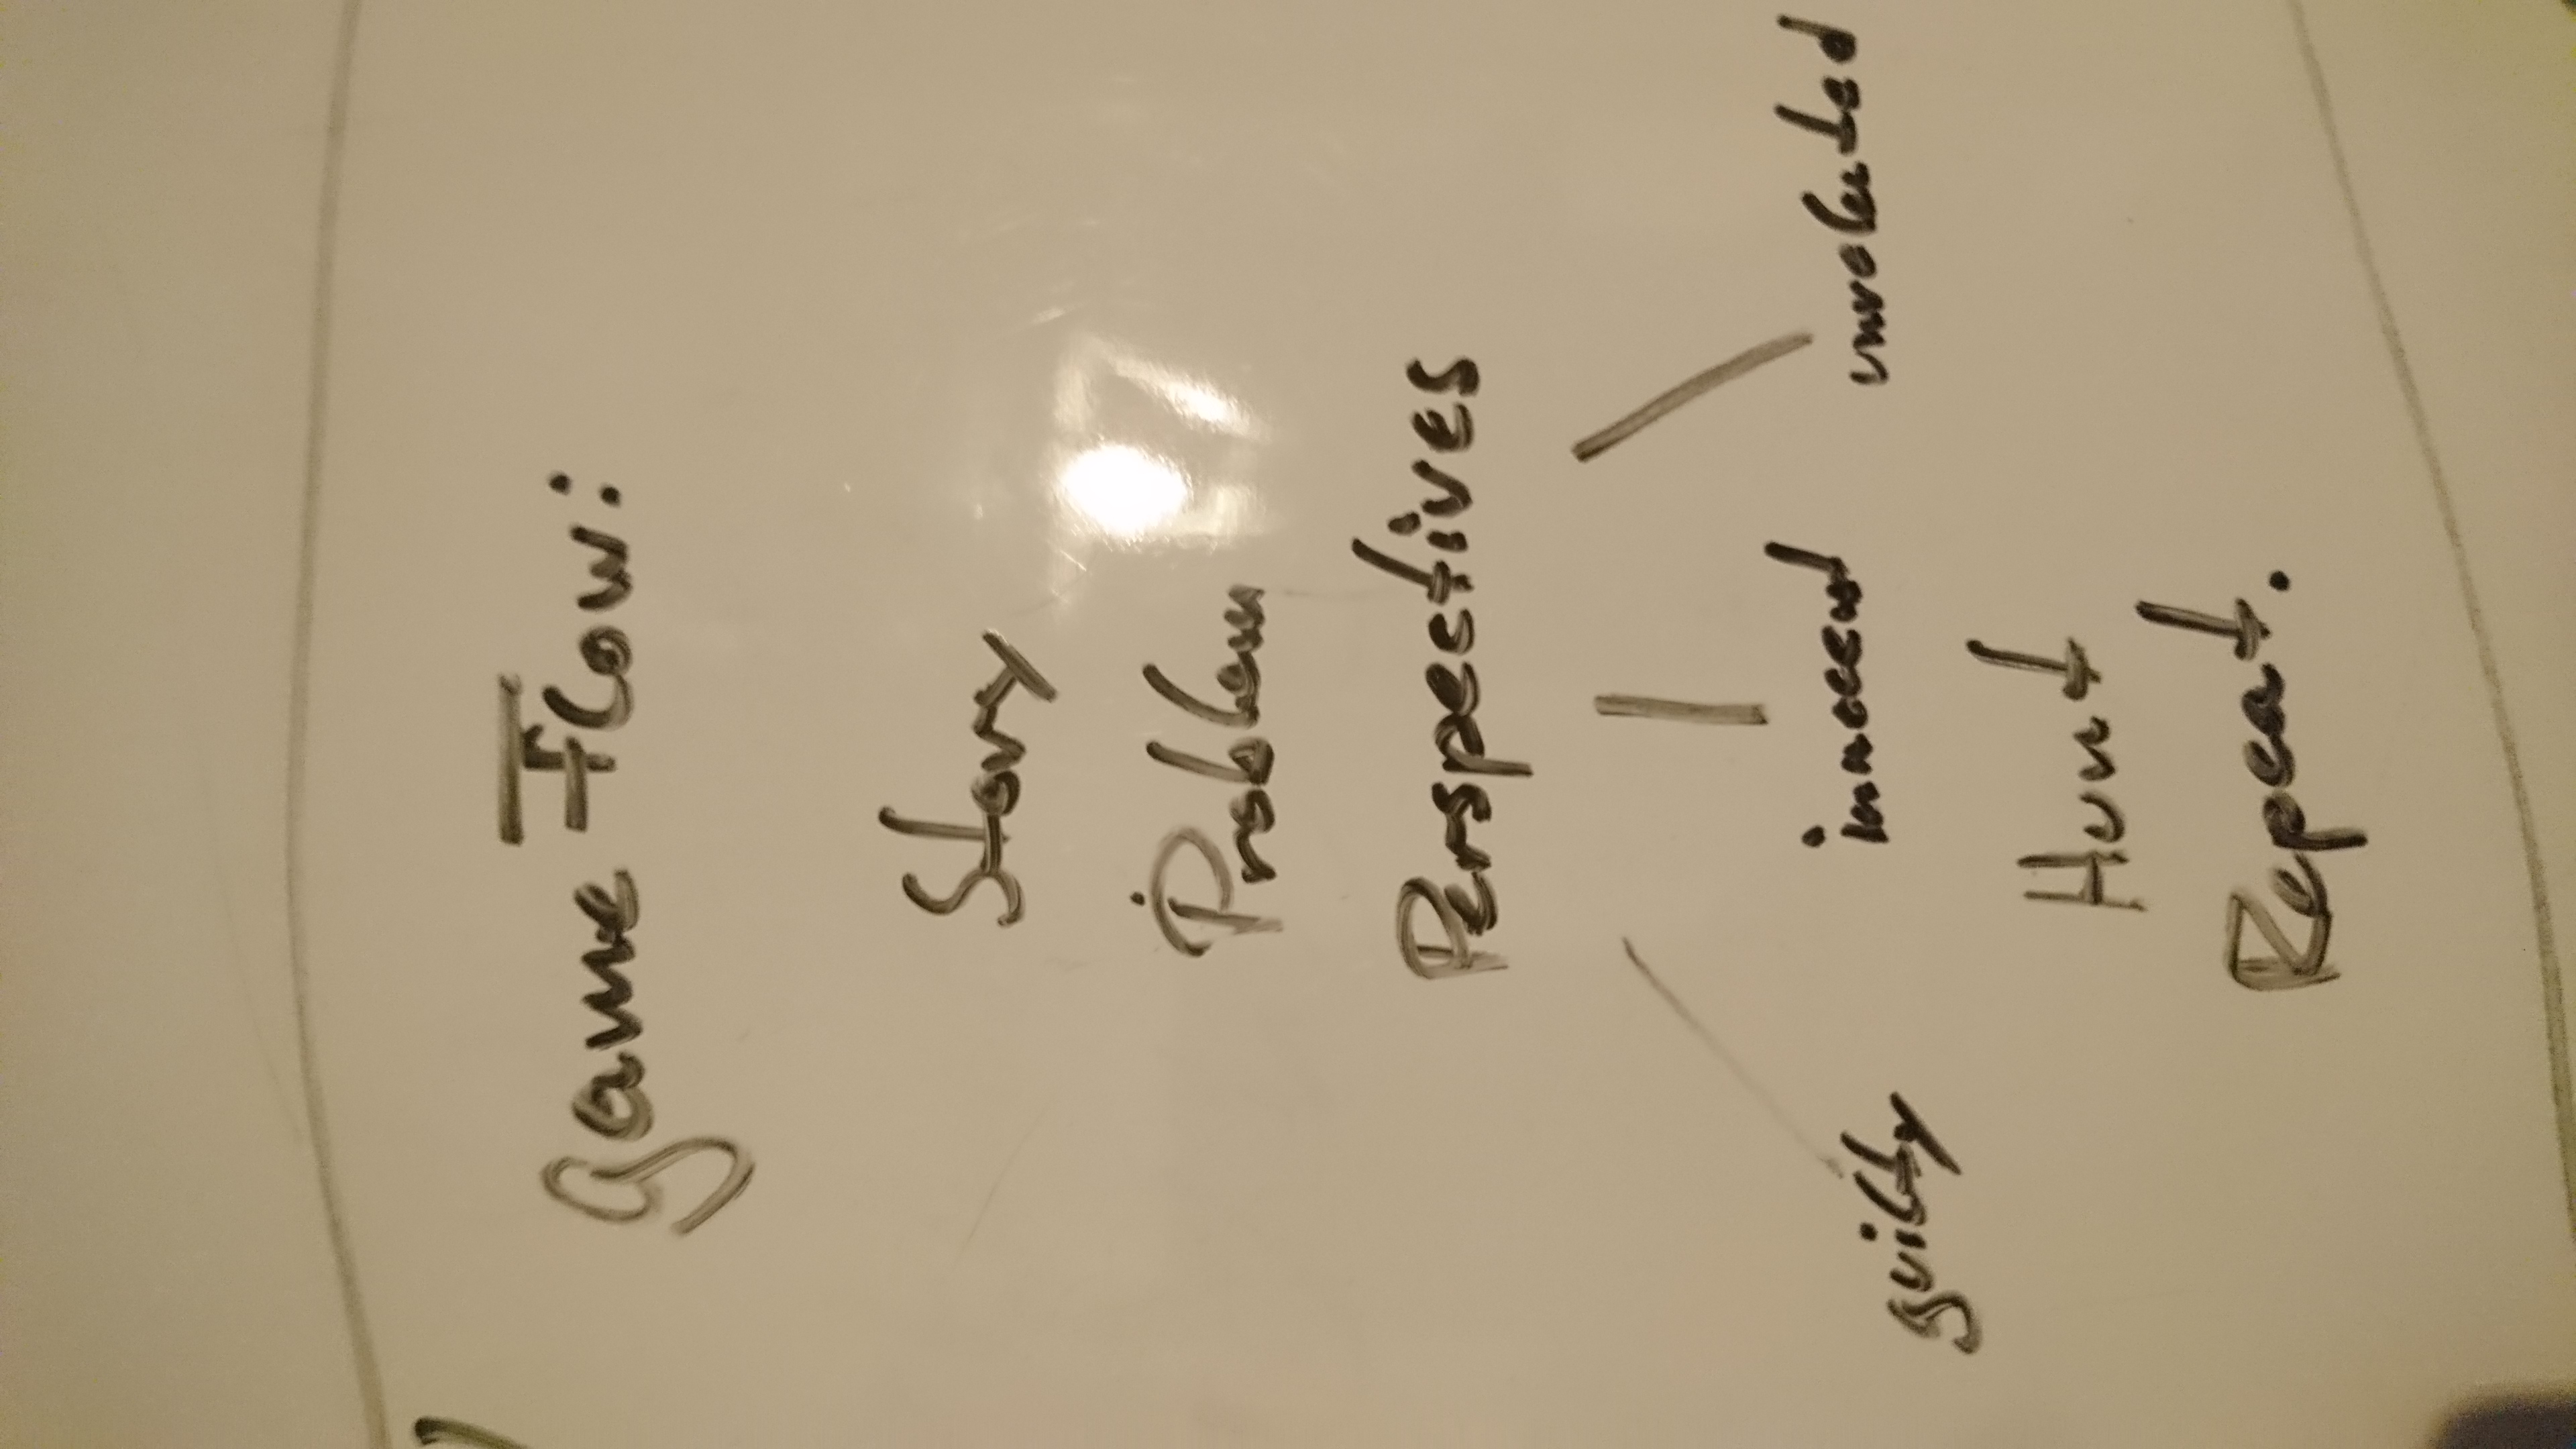 Game Flow:
Story
Problem
Perspectives
guilty innocent unrelated
Hunt
Repeat.